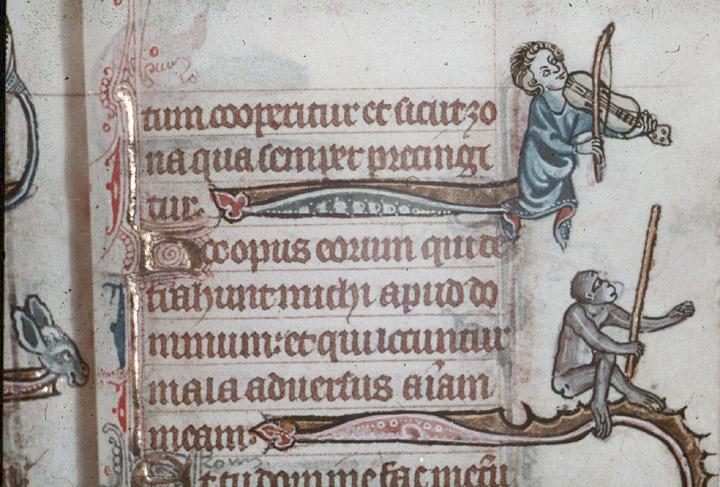 tum cooperitur et sicut zo
na qua semper precingi
tur.
Hoc opus eorum qui de
trahunt michi apud do
minum: et qui locuntur
mala adversus aīam
meam.
Et tu domine fac mecū